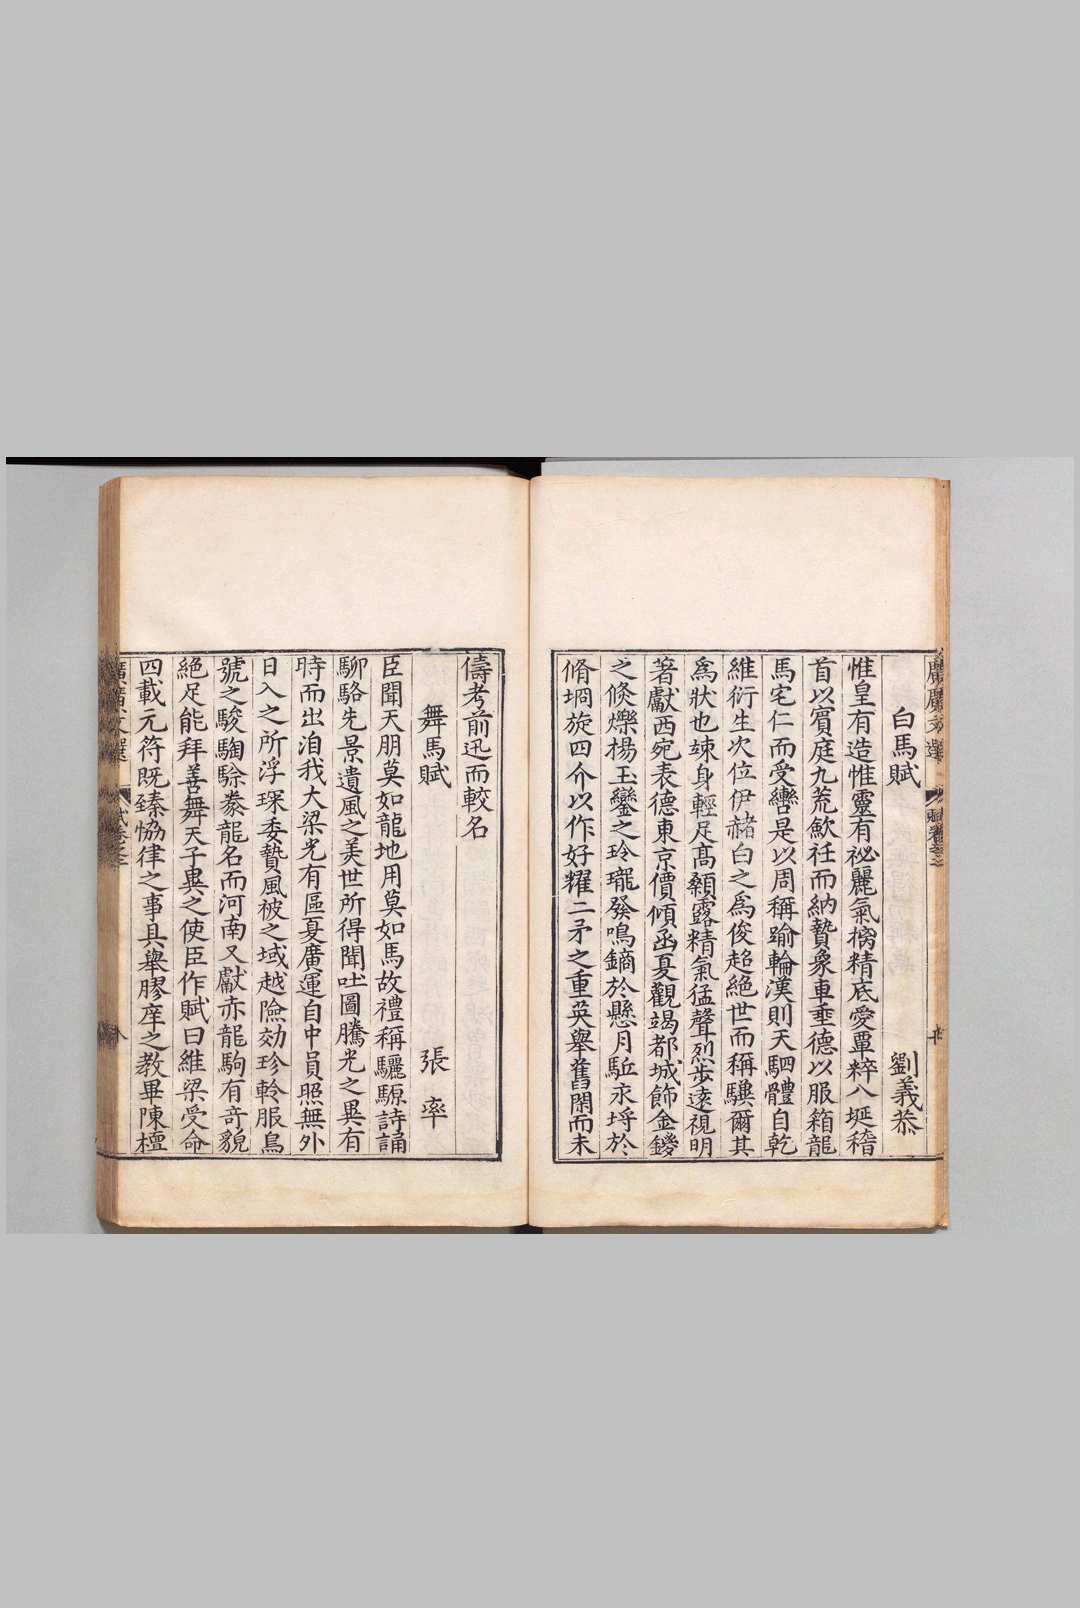 白馬賦 劉義恭
惟皇有造惟靈有祕麗氣摛精底愛覃粹八埏稽
首以賓庭九荒歛衽而納贄象車垂德以服箱龍
馬宅仁而受轡是以周稱踰輪漢則天駟體自乾
維衍生次位伊赭白之爲俊超絕世而稱驥爾其
爲狀也竦身輕足高顙露精氣猛聲烈步遠視明
著獻西宛表德東京價傾函夏觀竭都城飾金鍐
之倏爍楊玉鑾之玲瓏發鳴鏑於懸月駈永埒於
脩坰旋四介以作好耀二矛之重英舉舊閑而未
儔考前迅而較名
舞馬賦 張率
臣聞天朋莫如龍地用莫如馬故禮稱驪騵詩誦
駠駱先景遺風之美世所得聞吐圖騰光之異有
時而出洎我大梁光有區夏廣運自中員照無外
日入之所浮琛委贄風被之域越險効珍軨服烏
號之駿騊駼豢龍名而河南又獻赤龍駒有奇貌
絕足能拜善舞天子異之使臣作賦曰維梁受命
四載元符旣臻恊律之事具舉膠庠之教畢陳檀